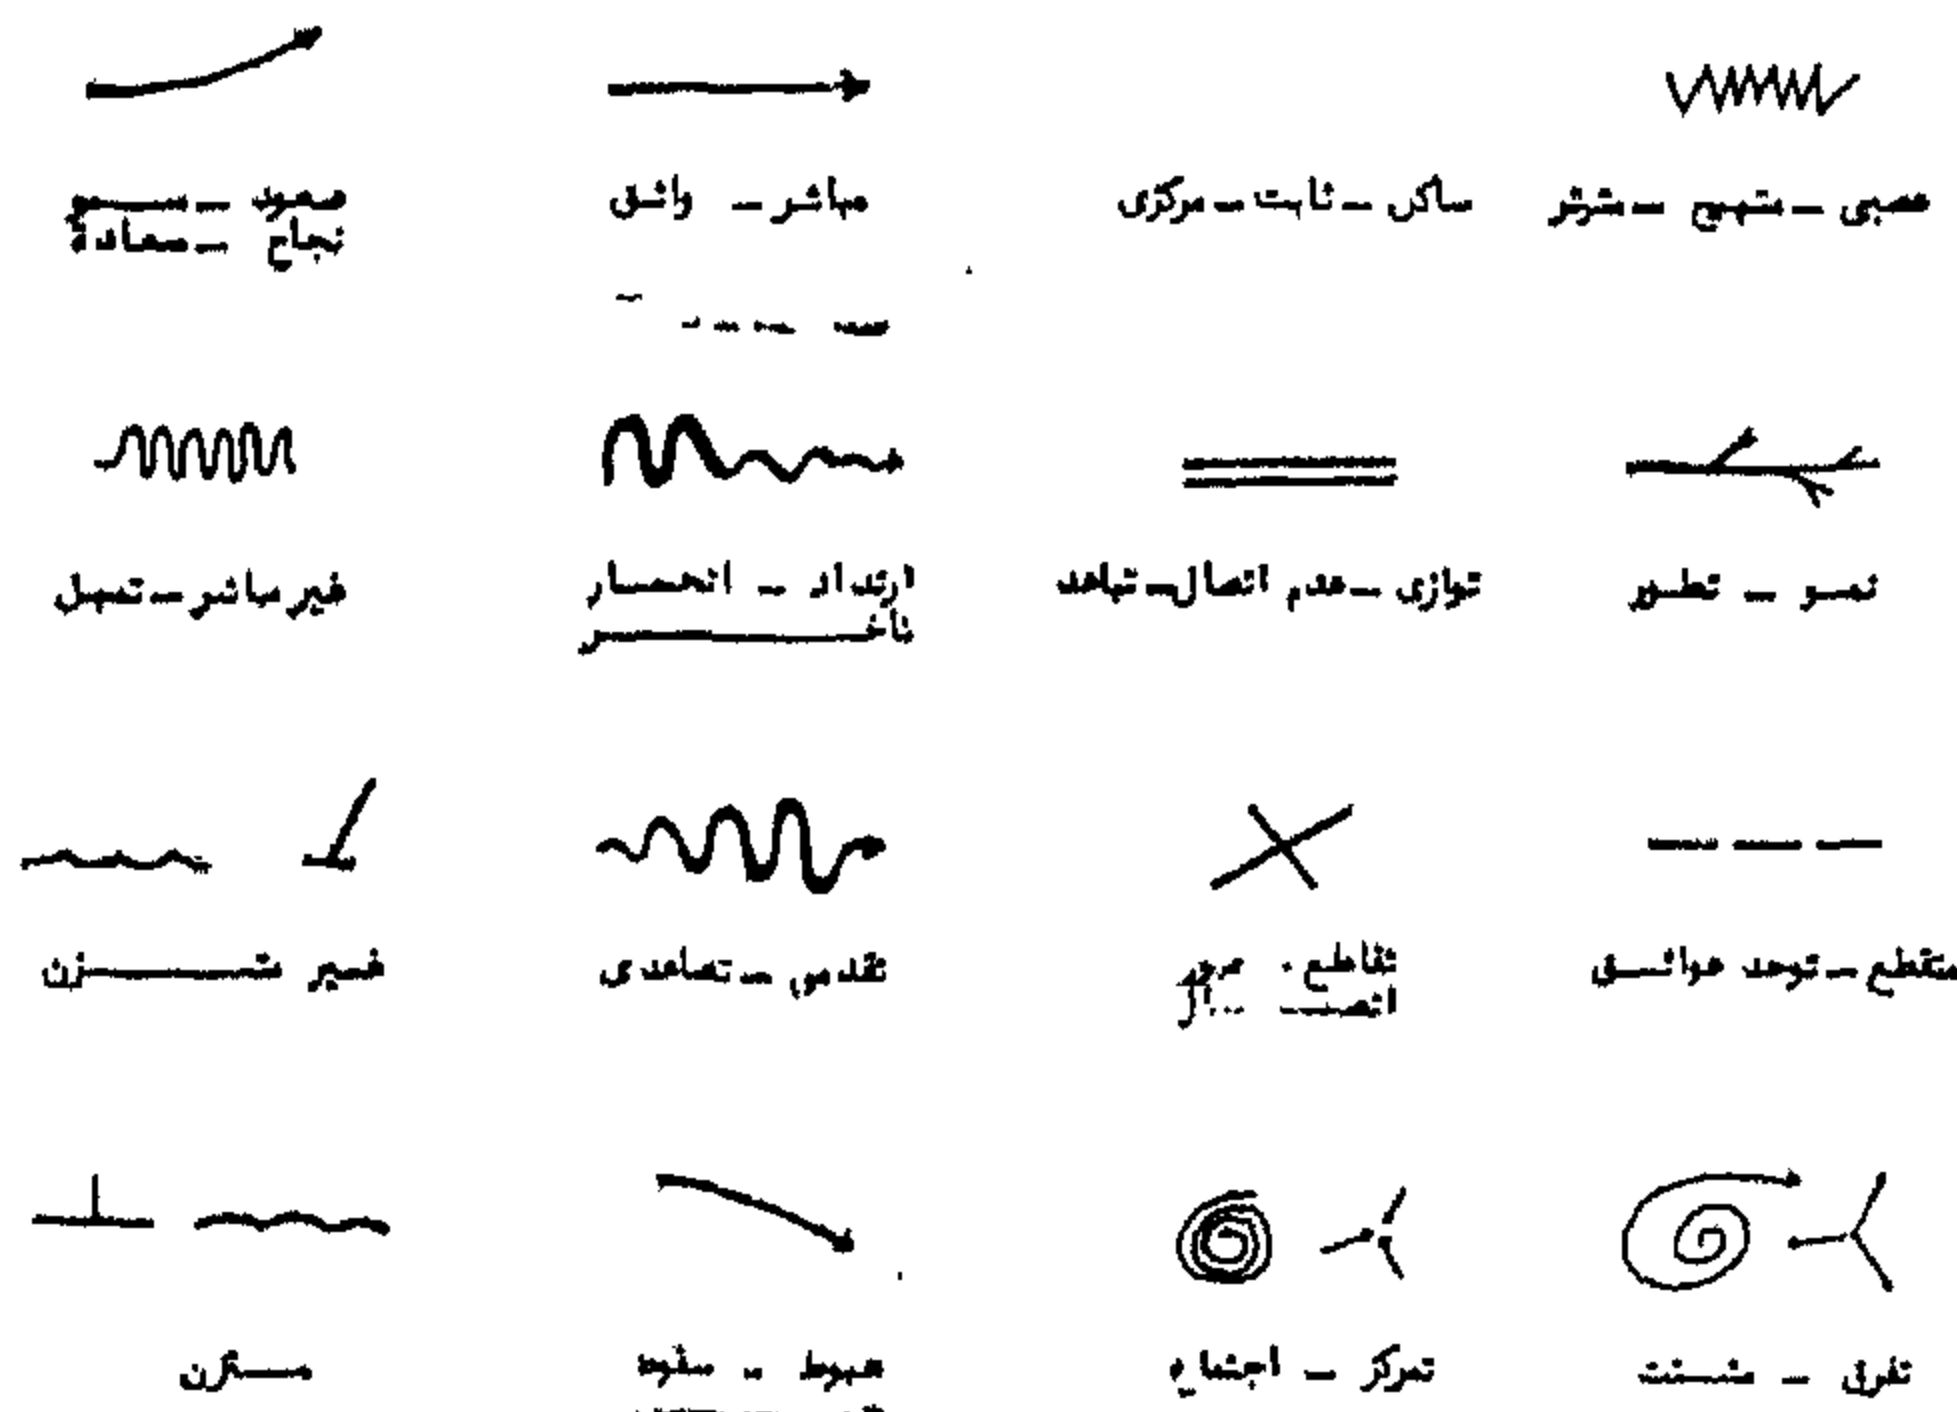 عصبى – متهيج – متوتر
ساكن – ثابت – مركزى
مباشر – واثق
صعود – سمو
نجاح – سعادة
نمو – تطور
توازى – عدم اتصال – تباعد
ارتداد – انحسار
تأخر
غير مباشر – تمهل
متقطع – توجد عوائق
تقاطع
اتصال
تقدمى – تصاعدى
غير متزن
تفرق – مشتت
تمركز – اجتماع
هبوط – سقوط
متزن